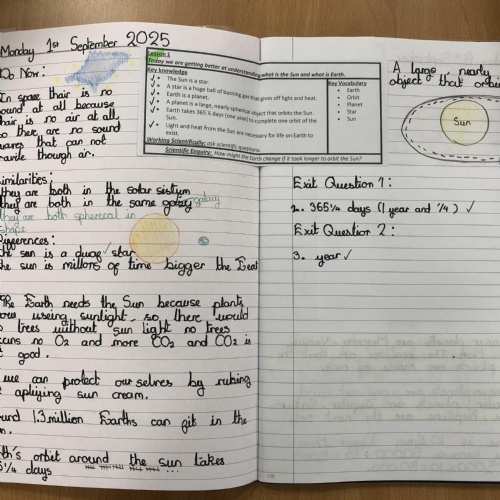 Monday 1st September 2025
Do Now:
In space thair is no
sound at all because
thair is no air at all
so there are no sound
waves that can not
travle though air.
Lesson 1
Today we are getting better at understanding what is the Sun and what is Earth.
Key knowledge
The Sun is a star.
A star is a huge ball of burning gas that gives off light and heat.
Earth is a planet.
A planet is a large, nearly spherical object that orbits the Sun.
Earth takes 365 ¼ days (one year) to complete one orbit of the
Sun.
Light and heat from the Sun are necessary for life on Earth to
exist.
Key Vocabulary
Earth
Orbit
Planet
Star
Sun
Working Scientifically: ask scientific questions.
Scientific Enquiry: How might the Earth change if it took longer to orbit the Sun?
similarities:
they are both in the solar sistym
they are both in the same
they are both spherical in
shape
Differences:
the sun is a star
the sun is millons of time bigger the Eart
The Earth needs the Sun because plants
useing sunlight, so there would
trees without sun light no trees
no O2 and more CO2 and CO2 is
good.
we can protect ourselves by rubing
apliying sun cream.
1.3 million Earths can fit in the
orbit around the sun takes
¼ days
A large, nearly
object that orbi
Sun
Exit Question 1:
2. 365¼ days (1 year and ¼) ✓
Exit Question 2:
3. year ✓